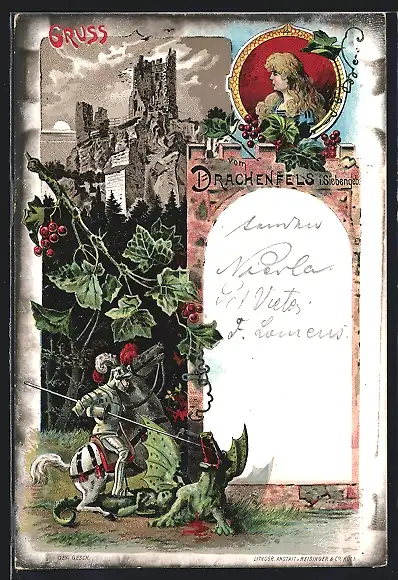 GRUSS
vom
DRACHENFELS i. Siebengeb.
senden
Nicola
Victor
GES. GESCH.
LITHOGR. ANSTALT v. REISINGER & Co KÖLN